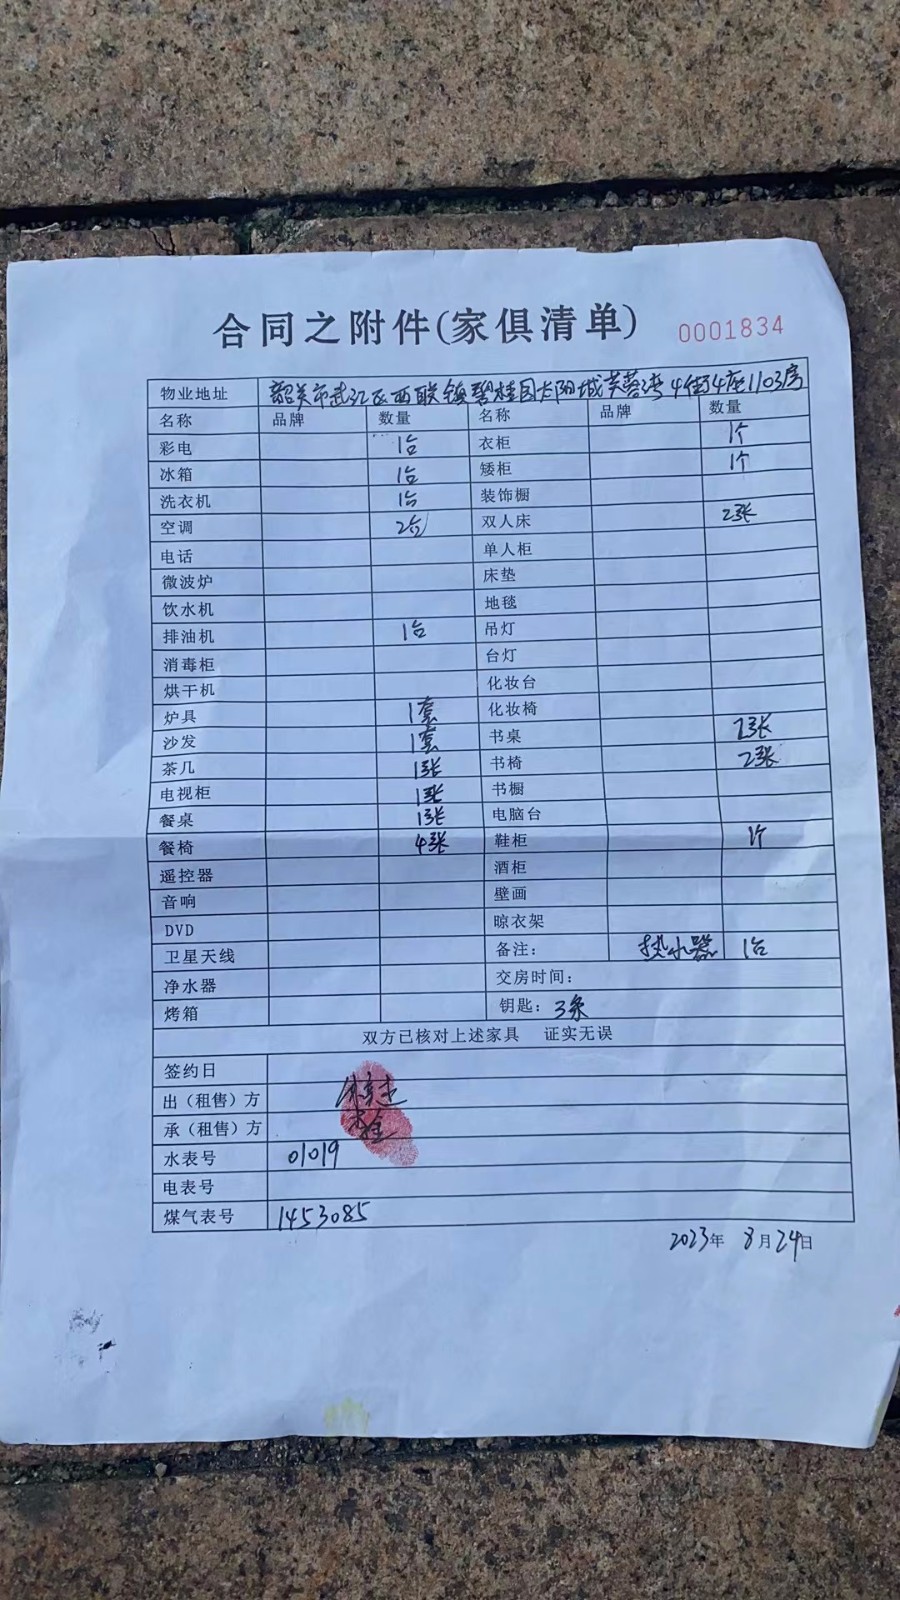 合同之附件(家俱清单) 0001834
物业地址 韶关市武江区西联镇碧桂园太阳城芙蓉湾4街4座1103房
名称 品牌 数量 名称 品牌 数量
彩电 1台 衣柜 1个
冰箱 1台 矮柜 1个
洗衣机 1台 装饰橱
空调 2台 双人床 2张
电话 单人柜
微波炉 床垫
饮水机 地毯
排油机 1台 吊灯
消毒柜 台灯
烘干机 化妆台
炉具 1套 化妆椅
沙发 1套 书桌 2张
茶几 1张 书椅 2张
电视柜 1张 书橱
餐桌 1张 电脑台
餐椅 4张 鞋柜 1个
遥控器 酒柜
音响 壁画
DVD 晾衣架
卫星天线 备注: 热水器 1台
净水器 交房时间:
烤箱 钥匙: 3条
双方已核对上述家具 证实无误
签约日
出（租售）方
承（租售）方
水表号 01019
电表号
煤气表号 1453085
2023年 8月24日